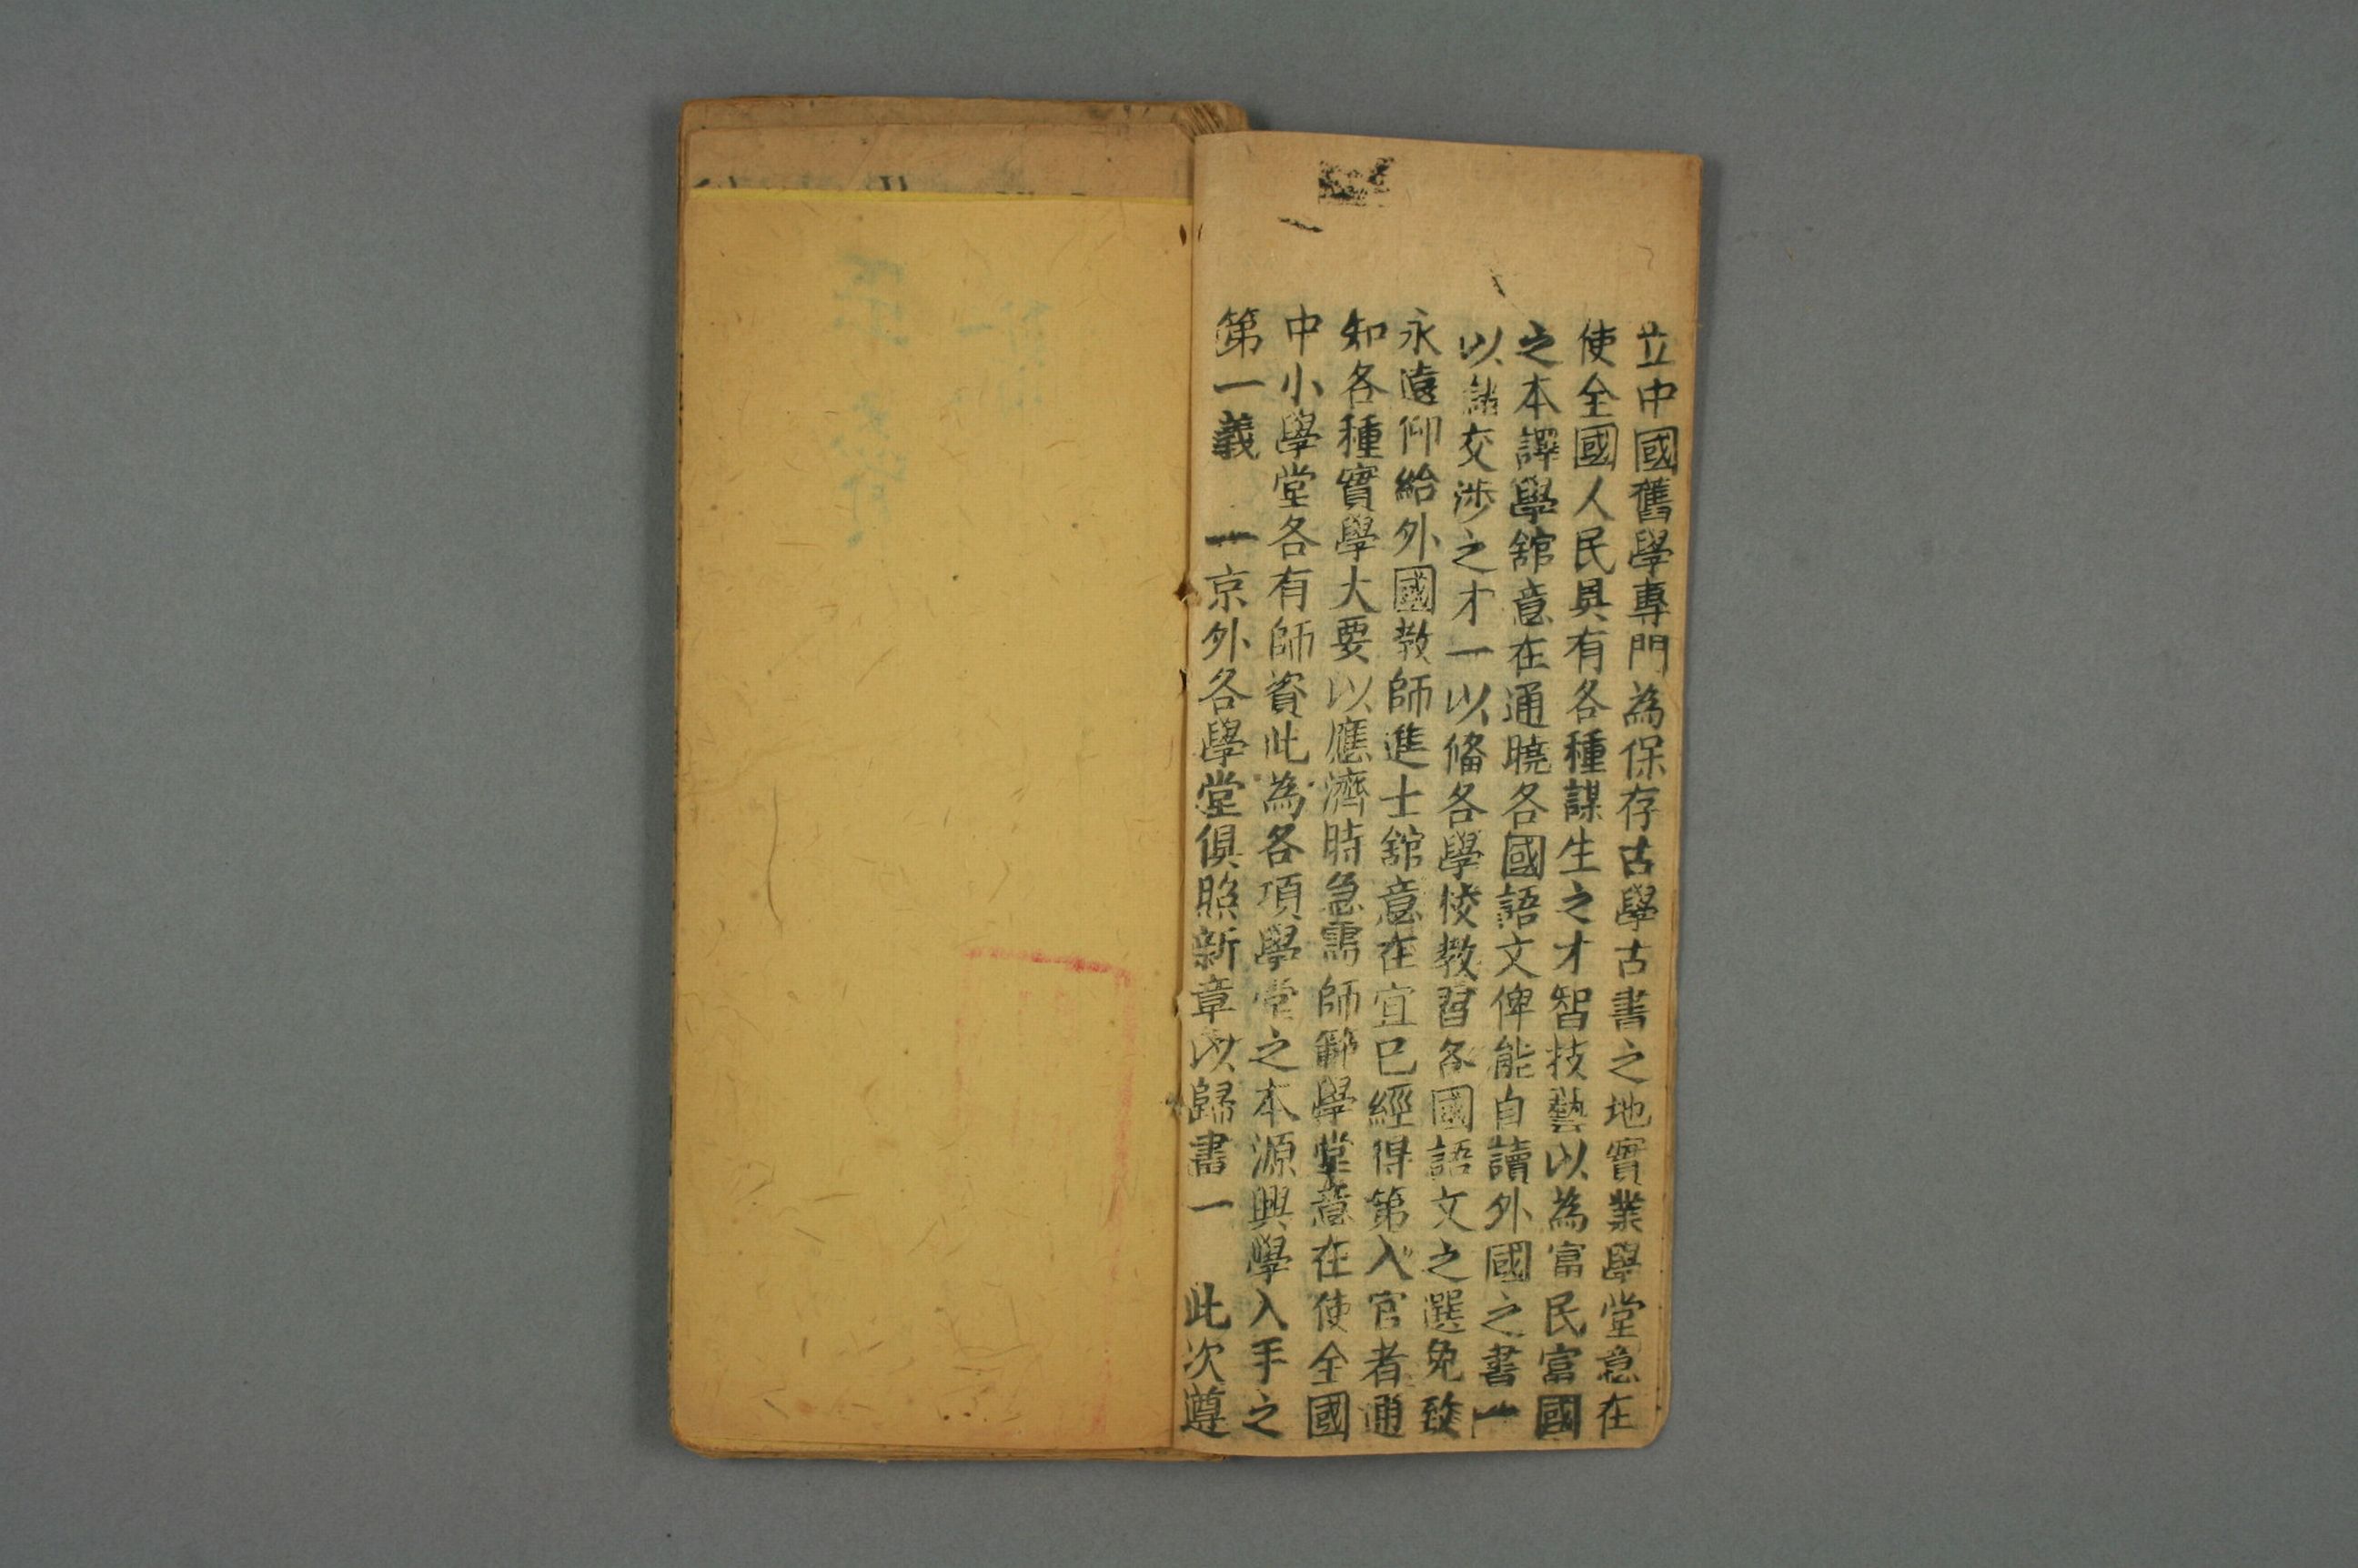 立中國舊學專門為保存古學古書之地實業學堂意在
使全國人民具有各種謀生之才智技藝以為富民富國
之本譯學舘意在通曉各國語文俾能自讀外國之書一
以儲交涉之才一以備各學校教習各國語文之選免致
永遠仰給外國教師進士舘意在宜已經得第入官者通
知各種實學大要以應濟時急需師範學堂意在使全國
中小學堂各有師資此為各項學堂之本源興學入手之
第一義　一京外各學堂俱照新章以歸畫一　此次遵